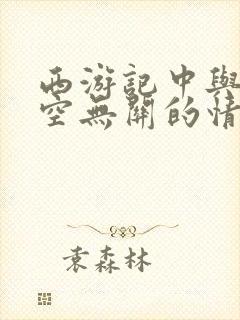 西游記中與
空無關的情
袁森林